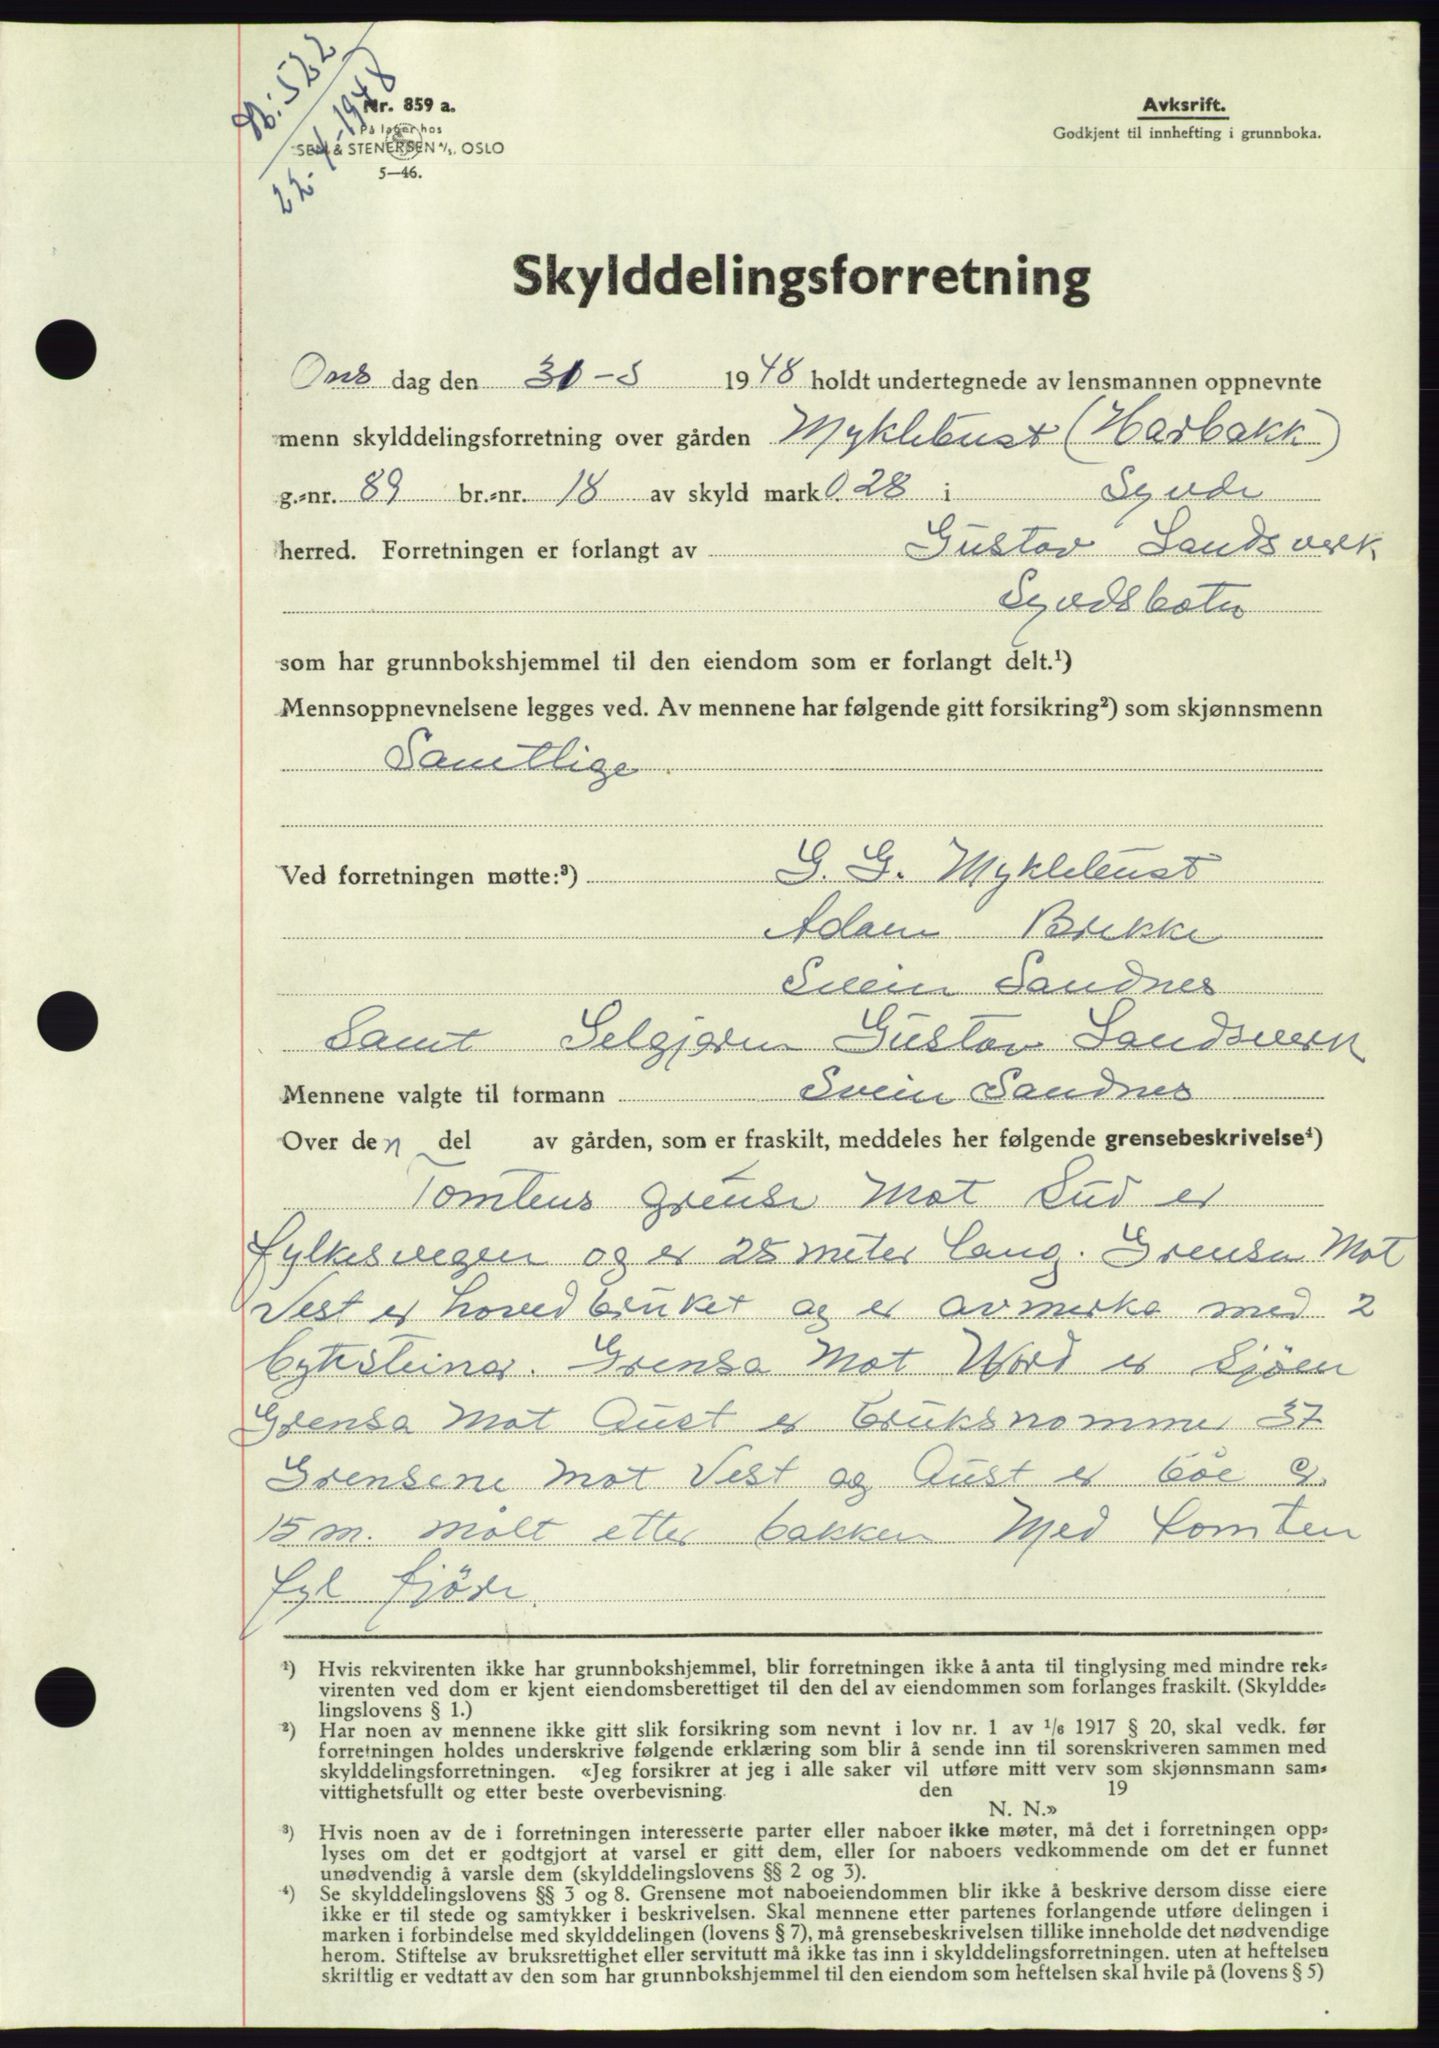 Nr. 522
22-4-1948
Nr. 859 a.
På lager hos
SEM & STENERSEN A/S, OSLO
5—46.
Avksrift.
Godkjent til innhefting i grunnboka.
Skylddelingsforretning
Ons dag den 31-3 1948 holdt undertegnede av lensmannen oppnevnte
menn skylddelingsforretning over gården Myklebust (Harbakk)
g.=nr. 89 br.=nr. 18 av skyld mark 0.28 i Syvde
herred. Forretningen er forlangt av Gustav Landsverk
Syvdsbotn
som har grunnbokshjemmel til den eiendom som er forlangt delt.¹)
Mennsoppnevnelsene legges ved. Av mennene har følgende gitt forsikring²) som skjønnsmenn
Samtlige.
Ved forretningen møtte:³) G. G. Myklebust
Adam Brekke
Svein Sandnes
Samt Selgjaren Gustav Landsverk
Mennene valgte til formann Svein Sandnes
Over den del av gården, som er fraskilt, meddeles her følgende grensebeskrivelse⁴)
Tomtens grense Mot Sud er
fylkesvegen og er 28 meter lang. Grensa Mot
Vest er hovedbruket og er avmerka med 2
bytesteinar. Grensa Mot Nord er Sjöen
Grensa Mot Aust er bruksnommer 37
Grensene mot Vest og Aust er båe er
15 m. målt etter bakken Med tomten
fyl fjöre.
¹) Hvis rekvirenten ikke har grunnbokshjemmel, blir forretningen ikke å anta til tinglysing med mindre rek=
virenten ved dom er kjent eiendomsberettiget til den del av eiendommen som forlanges fraskilt. (Skyldde=
lingslovens § 1.)
²) Har noen av mennene ikke gitt slik forsikring som nevnt i lov nr. 1 av 1/6 1917 § 20, skal vedk. før
forretningen holdes underskrive følgende erklæring som blir å sende inn til sorenskriveren sammen med
skylddelingsforretningen. «Jeg forsikrer at jeg i alle saker vil utføre mitt verv som skjønnsmann sam=
vittighetsfullt og etter beste overbevisning. den 19
N. N.»
³) Hvis noen av de i forretningen interesserte parter eller naboer ikke møter, må det i forretningen opp=
lyses om det er godtgjort at varsel er gitt dem, eller for naboers vedkommende om det er funnet
unødvendig å varsle dem (skylddelingslovens §§ 2 og 3).
⁴) Se skylddelingslovens §§ 3 og 8. Grensene mot naboeiendommen blir ikke å beskrive dersom disse eiere
ikke er til stede og samtykker i beskrivelsen. Skal mennene etter partenes forlangende utføre delingen i
marken i forbindelse med skylddelingen (lovens § 7), må grensebeskrivelsen tillike inneholde det nødvendige
herom. Stiftelse av bruksrettighet eller servitutt må ikke tas inn i skylddelingsforretningen. uten at heftelsen
skriftlig er vedtatt av den som har grunnbokshjemmel til den eiendom som heftelsen skal hvile på (lovens § 5)